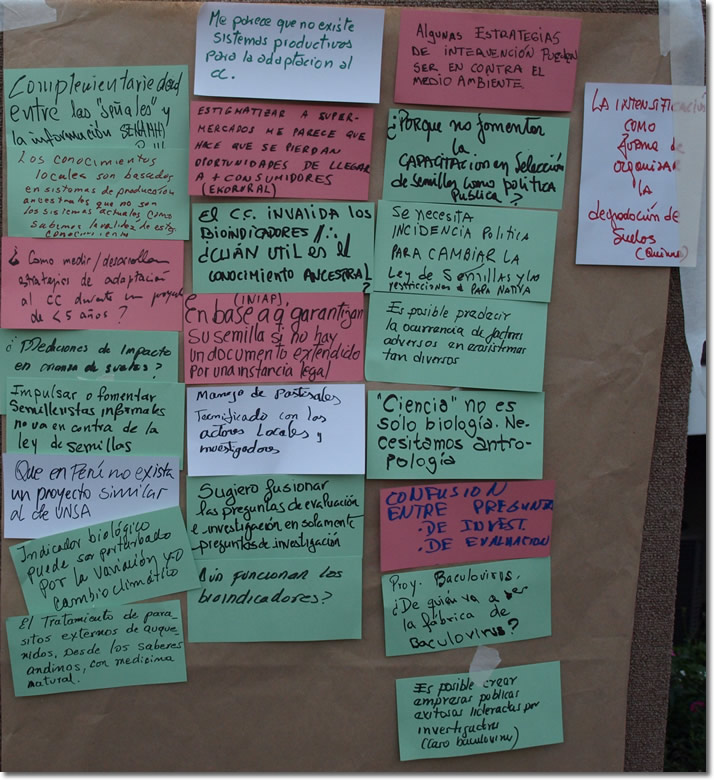 Complementariedad
entre las "señales" y
la información SENAMHI
Los conocimientos
locales son basados
en sistemas de producción
ancestrales que no son
los sistemas actuales como
sabemos la validez de estos
conocimientos
¿Como medir/desarrollar
estrategias de adaptación
al CC durante un proyecto
de <5 años?
¿Mediciones de impacto
en crianza de suelos?
Impulsar o fomentar
Semilleristas informales
no va en contra de la
ley de semillas
Que en Perú no exista
un proyecto similar
al de UNSA
Indicador biológico
puede ser perturbado
por la variación y/o
cambio climático
El Tratamiento de para_
sitos externos de auque_
nidos, desde los saberes
andinos, con medicina
natural.
Me parece que no existe
sistemas productivos
para la adaptacion al
CC.
ESTIGMATIZAR A SUPER-
MERCADOS ME PARECE QUE
HACE QUE SE PIERDAN
OPORTUNIDADES DE LLEGAR
A + CONSUMIDORES
(EKORURAL)
El CC. INVALIDA los
BIOINDICADORES
¿CUÁN UTIL es el
CONOCIMIENTO ANCESTRAL?
(INIAP)
En base a q garantizan
su semilla si no hay
un documento extendido
por una instancia legal
Manejo de Pastizales
Tecnificado con los
actores Locales y
investigadores
Sugiero fusionar
las preguntas de evaluación
e investigación en solamente
preguntas de investigación
funcionar los
bioindicadores?
ALGUNAS ESTRATEGIAS
DE INTERVENCIÓN PUEDEN
SER EN CONTRA EL
MEDIO AMBIENTE
¿PORque no fomentar
la
CAPACITACION en Selección
de Semillas como política
Publica?
Se necesita
INCIDENCIA Política
PARA CAMBIAR LA
Ley de Semillas y las
restricciones PARA NATIVA
Es posible predecir
la ocurrencia de factores
adversos en ecosistemas
tan diversos
"Ciencia" no es
solo biología. Ne-
cesitamos antro-
pología
CONFUSION
ENTRE PREGUNTA
.DE INVEST.
.DE EVALUACION
Proy. Baculovirus.
¿De quién va a ser
la fábrica de
Baculovirus?
Es posible crear
empresas públicas
exitosas lideradas por
investigadores
(caso baculovirus)
LA INTENSIFICACIÓN
COMO
forma de
organizar
la
degradación de
Suelos
(Quinua)